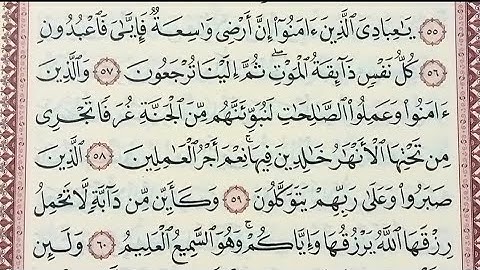 ٥٥ يَٰعِبَادِىَ ٱلَّذِينَ ءَامَنُوٓا۟ إِنَّ أَرْضِى وَٰسِعَةٌ فَإِيَّٰىَ فَٱعْبُدُونِ
٥٦ كُلُّ نَفْسٍ ذَآئِقَةُ ٱلْمَوْتِ ۖ ثُمَّ إِلَيْنَا تُرْجَعُونَ ٥٧ وَٱلَّذِينَ
ءَامَنُوا۟ وَعَمِلُوا۟ ٱلصَّٰلِحَٰتِ لَنُبَوِّئَنَّهُم مِّنَ ٱلْجَنَّةِ غُرَفًا تَجْرِى
مِن تَحْتِهَا ٱلْأَنْهَٰرُ خَٰلِدِينَ فِيهَا ۚ نِعْمَ أَجْرُ ٱلْعَٰمِلِينَ ٥٨ ٱلَّذِينَ
صَبَرُوا۟ وَعَلَىٰ رَبِّهِمْ يَتَوَكَّلُونَ ٥٩ وَكَأَيِّن مِّن دَآبَّةٍ لَّا تَحْمِلُ
رِزْقَهَا ٱللَّهُ يَرْزُقُهَا وَإِيَّاكُمْ ۚ وَهُوَ ٱلسَّمِيعُ ٱلْعَلِيمُ ٦٠ وَلَئِن